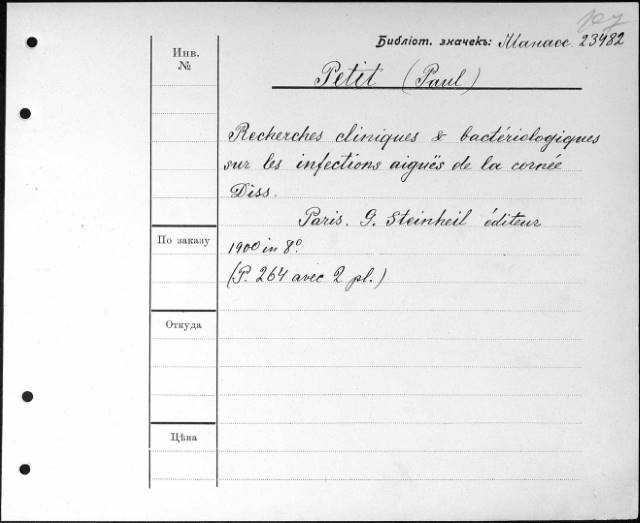 Библіот. значекъ: Шапаос. 23482
Инв.
№
Petit (Paul)
Recherches cliniques & bactériologiques
sur les infections aiguës de la cornée
Diss.
Paris. G. Steinheil éditeur
1900 in 8°
(P. 264 avec 2 pl.)
По заказу
Откуда
Цѣна